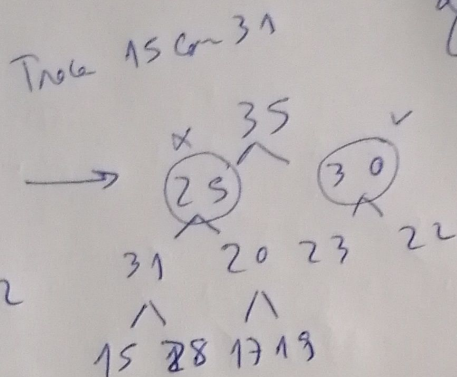 Troca 15 com 31
35
x
✓
→ 25 30
31 20 23 22
2
15 28 17 19